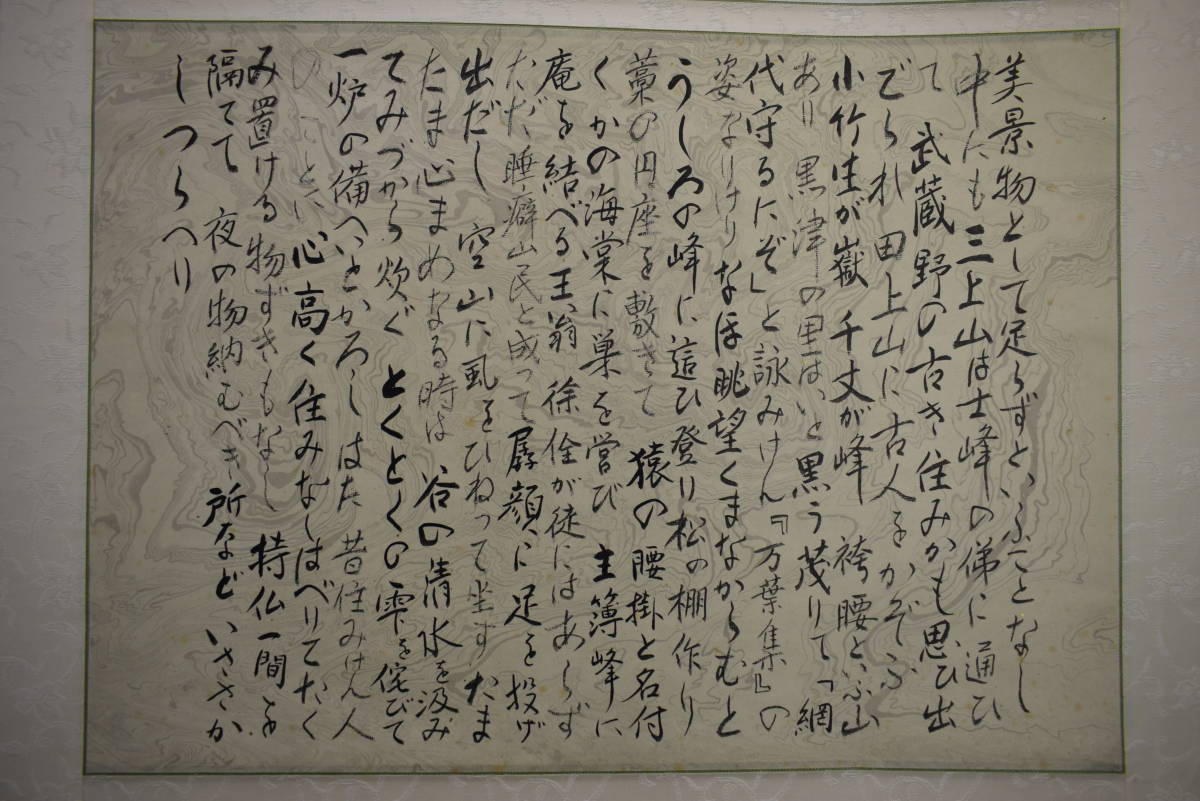 美景物として足らずといふことなし
中にも三上山は士峰の俤に通ひ
て 武蔵野の古き住みかも思ひ出
でられ 田上山に古人をかぞふ
小竹生が嶽 千丈が峰 袴腰といふ山
あり 黒津の里はいと黒う茂りて「網
代守るにぞ」と詠みけん『万葉集』の
姿なりけり なほ眺望くまなからむと
うしろの峰に這ひ登り松の棚作り
藁の円座を敷きて 猿の腰掛と名付
くかの海棠に巣を営び 主簿峰に
庵を結べる王翁 徐佺が徒にはあらず
ただ睡癖山民と成って孱顔に足を投げ
出だし 空山に虱をひねって坐す たま
たま心まめなる時は 谷の清水を汲み
てみづから炊ぐ とくとくの雫を侘びて
一炉の備へいとかろし はた 昔住みけん人
の ことに 心高く住みなしはべりてたく
み置ける物ずきもなし 持仏一間を
隔てて 夜の物納むべき 所など いささか
しつらへり